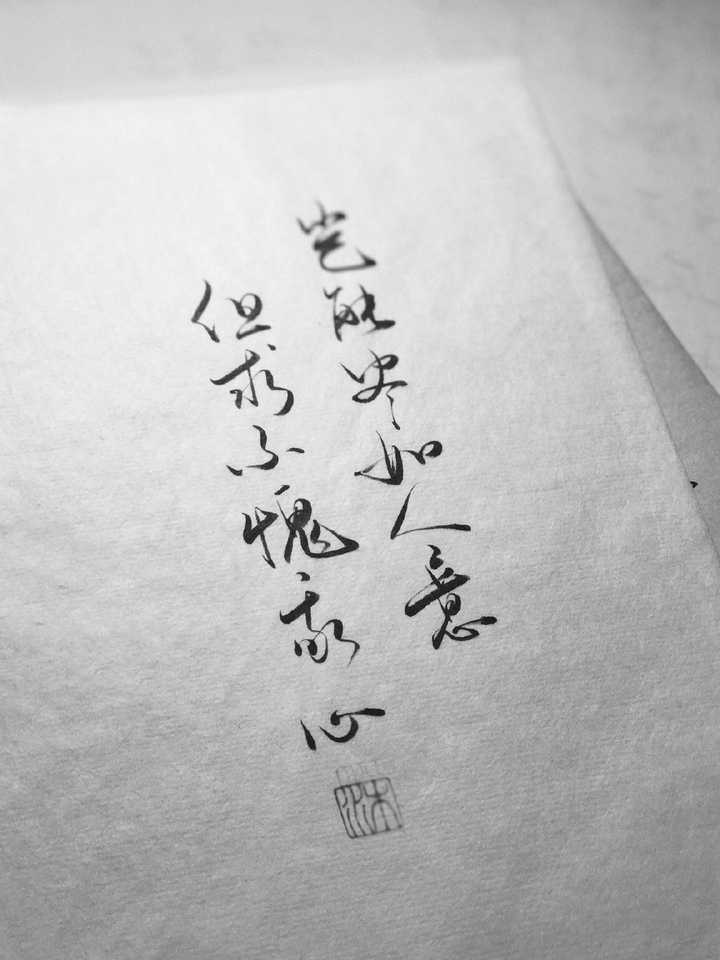 岂能尽如人意
但求不愧我心